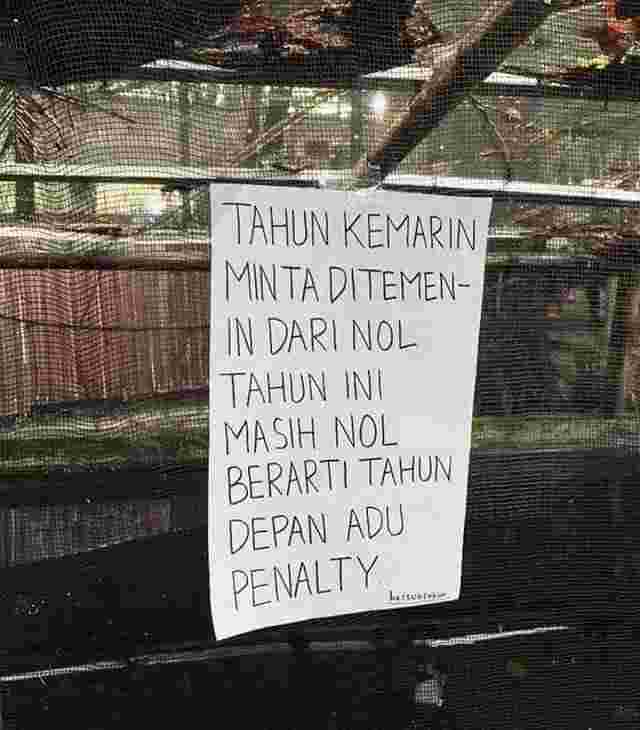 TAHUN KEMARIN
MINTA DITEMEN-
IN DARI NOL
TAHUN INI
MASIH NOL
BERARTI TAHUN
DEPAN ADU
PENALTY